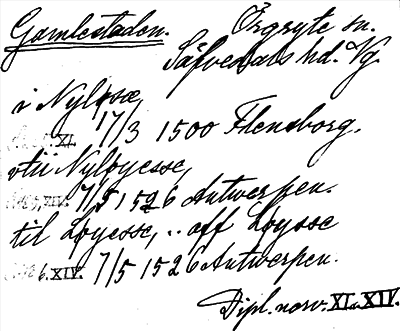 Gamlestaden. Örgryte sn.
Säfvedals hd. Vg.
i Nyløsæ,
XI. 17/3 1500 Flensborg.
vtii Nyløyesse,
XIV. 7/5 1526 Antwerpen.
til Løyesse, .. aff Løysse
6. XIV. 7/5 1526 Antwerpen.
Dipl. norv. XI. XIV.